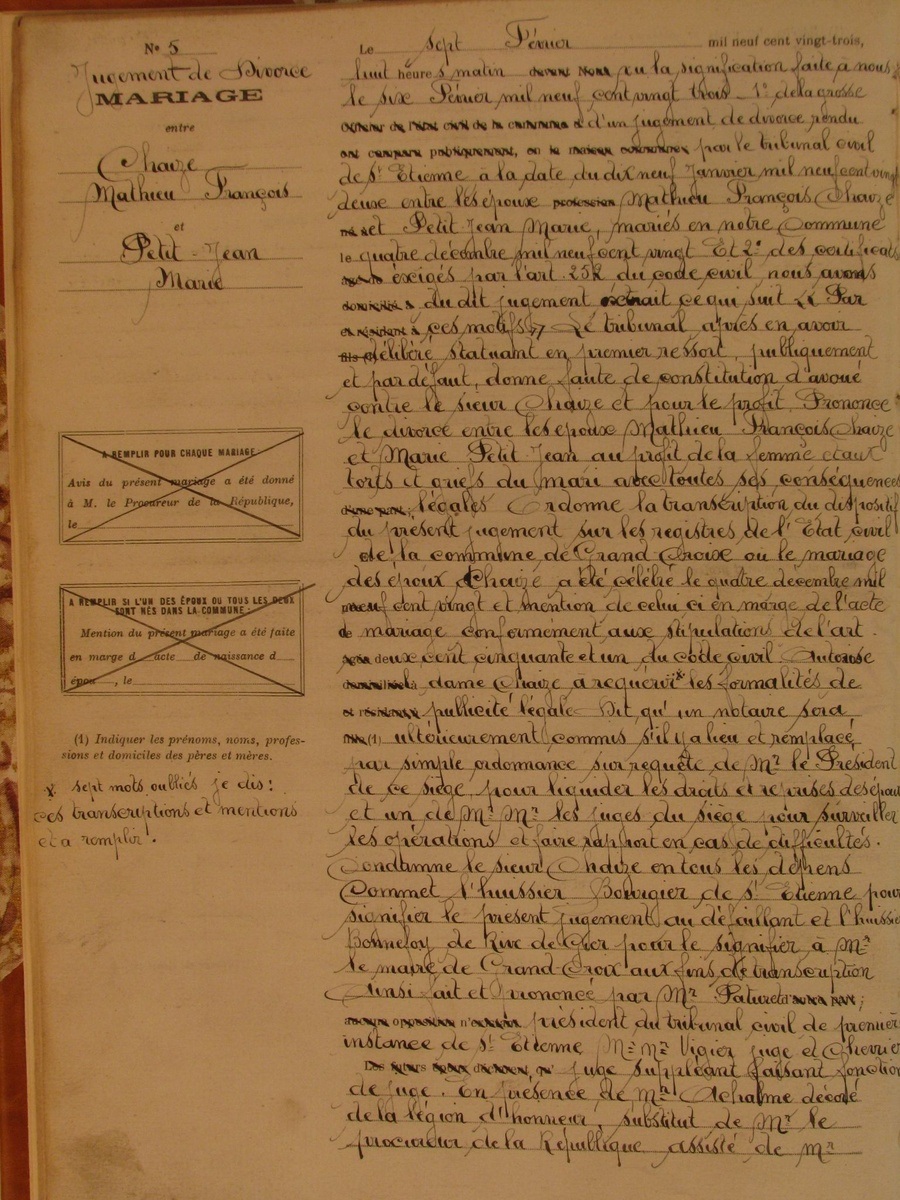 N° 5
Jugement de Divorce
MARIAGE
entre
Chaize
Mathieu François
et
Petit-Jean
Marie
A REMPLIR POUR CHAQUE MARIAGE
Avis du présent mariage a été donné
à M. le Procureur de la République,
le
A REMPLIR SI L'UN DES ÉPOUX OU TOUS LES DEUX
SONT NÉS DANS LA COMMUNE :
Mention du présent mariage a été faite
en marge d acte de naissance d
épou , le
(1) Indiquer les prénoms, noms, profes-
sions et domiciles des pères et mères.
x sept mots oubliés je dis :
ces transcriptions et mentions
et a remplir.
Le sept Février mil neuf cent vingt-trois,
huit heures matin devant Nous vu la signification faite à nous
le six Février mil neuf cent vingt trois _ 1° de la grosse
d'un jugement de divorce rendu
par le tribunal civil
de St Etienne à la date du dix neuf Janvier mil neuf cent vingt
deux entre les époux profession Mathieu François Chaize
et Petit Jean Marie, mariés en notre Commune
le quatre décembre mil neuf cent vingt Et 2° des certificats
exigés par l'art. 252 du code civil nous avons
du dit jugement extrait ce qui suit Par
ces motifs Le tribunal après en avoir
délibéré statuant en premier ressort, publiquement
et par défaut, donne faute de constitution d'avoué
contre le sieur Chaize et pour le profit Prononce
le divorce entre les époux Mathieu François Chaize
et Marie Petit Jean au profit de la femme et aux
torts et griefs du mari avec toutes ses conséquences
légales Ordonne la transcription du dispositif
du présent jugement sur les registres de l'Etat civil
de la commune de Grand Croix où le mariage
des époux Chaize a été célébré le quatre décembre mil
neuf cent vingt et mention de celui ci en marge de l'acte
de mariage conformément aux stipulations de l'art.
deux cent cinquante et un du code civil Autorise
dame Chaize à requérir x les formalités de
publicité légale Dit qu'un notaire sera
(1) ultérieurement commis s'il y a lieu et remplacé
par simple ordonnance sur requête de Mr le Président
de ce siège, pour liquider les droits et reprises des époux
et un de Mr Mr les juges du siège pour surveiller
les opérations et faire rapport en cas de difficultés.
Condamne le sieur Chaize en tous les dépens
Commet l'huissier Bourgier de St Etienne pour
signifier le présent jugement au défaillant et l'huissier
Bonnefoy de Rive de Gier pour le signifier à Mr
le maire de Grand-Croix aux fins de transcription
Ainsi fait et prononcé par Mr
président du tribunal civil de première
instance de St Etienne Mr Mr Vigier juge et Chevrier
juge suppléant faisant fonction
de juge. En présence de Mr Achalme décoré
de la légion d'honneur, substitut de Mr le
procureur de la République assisté de Mr